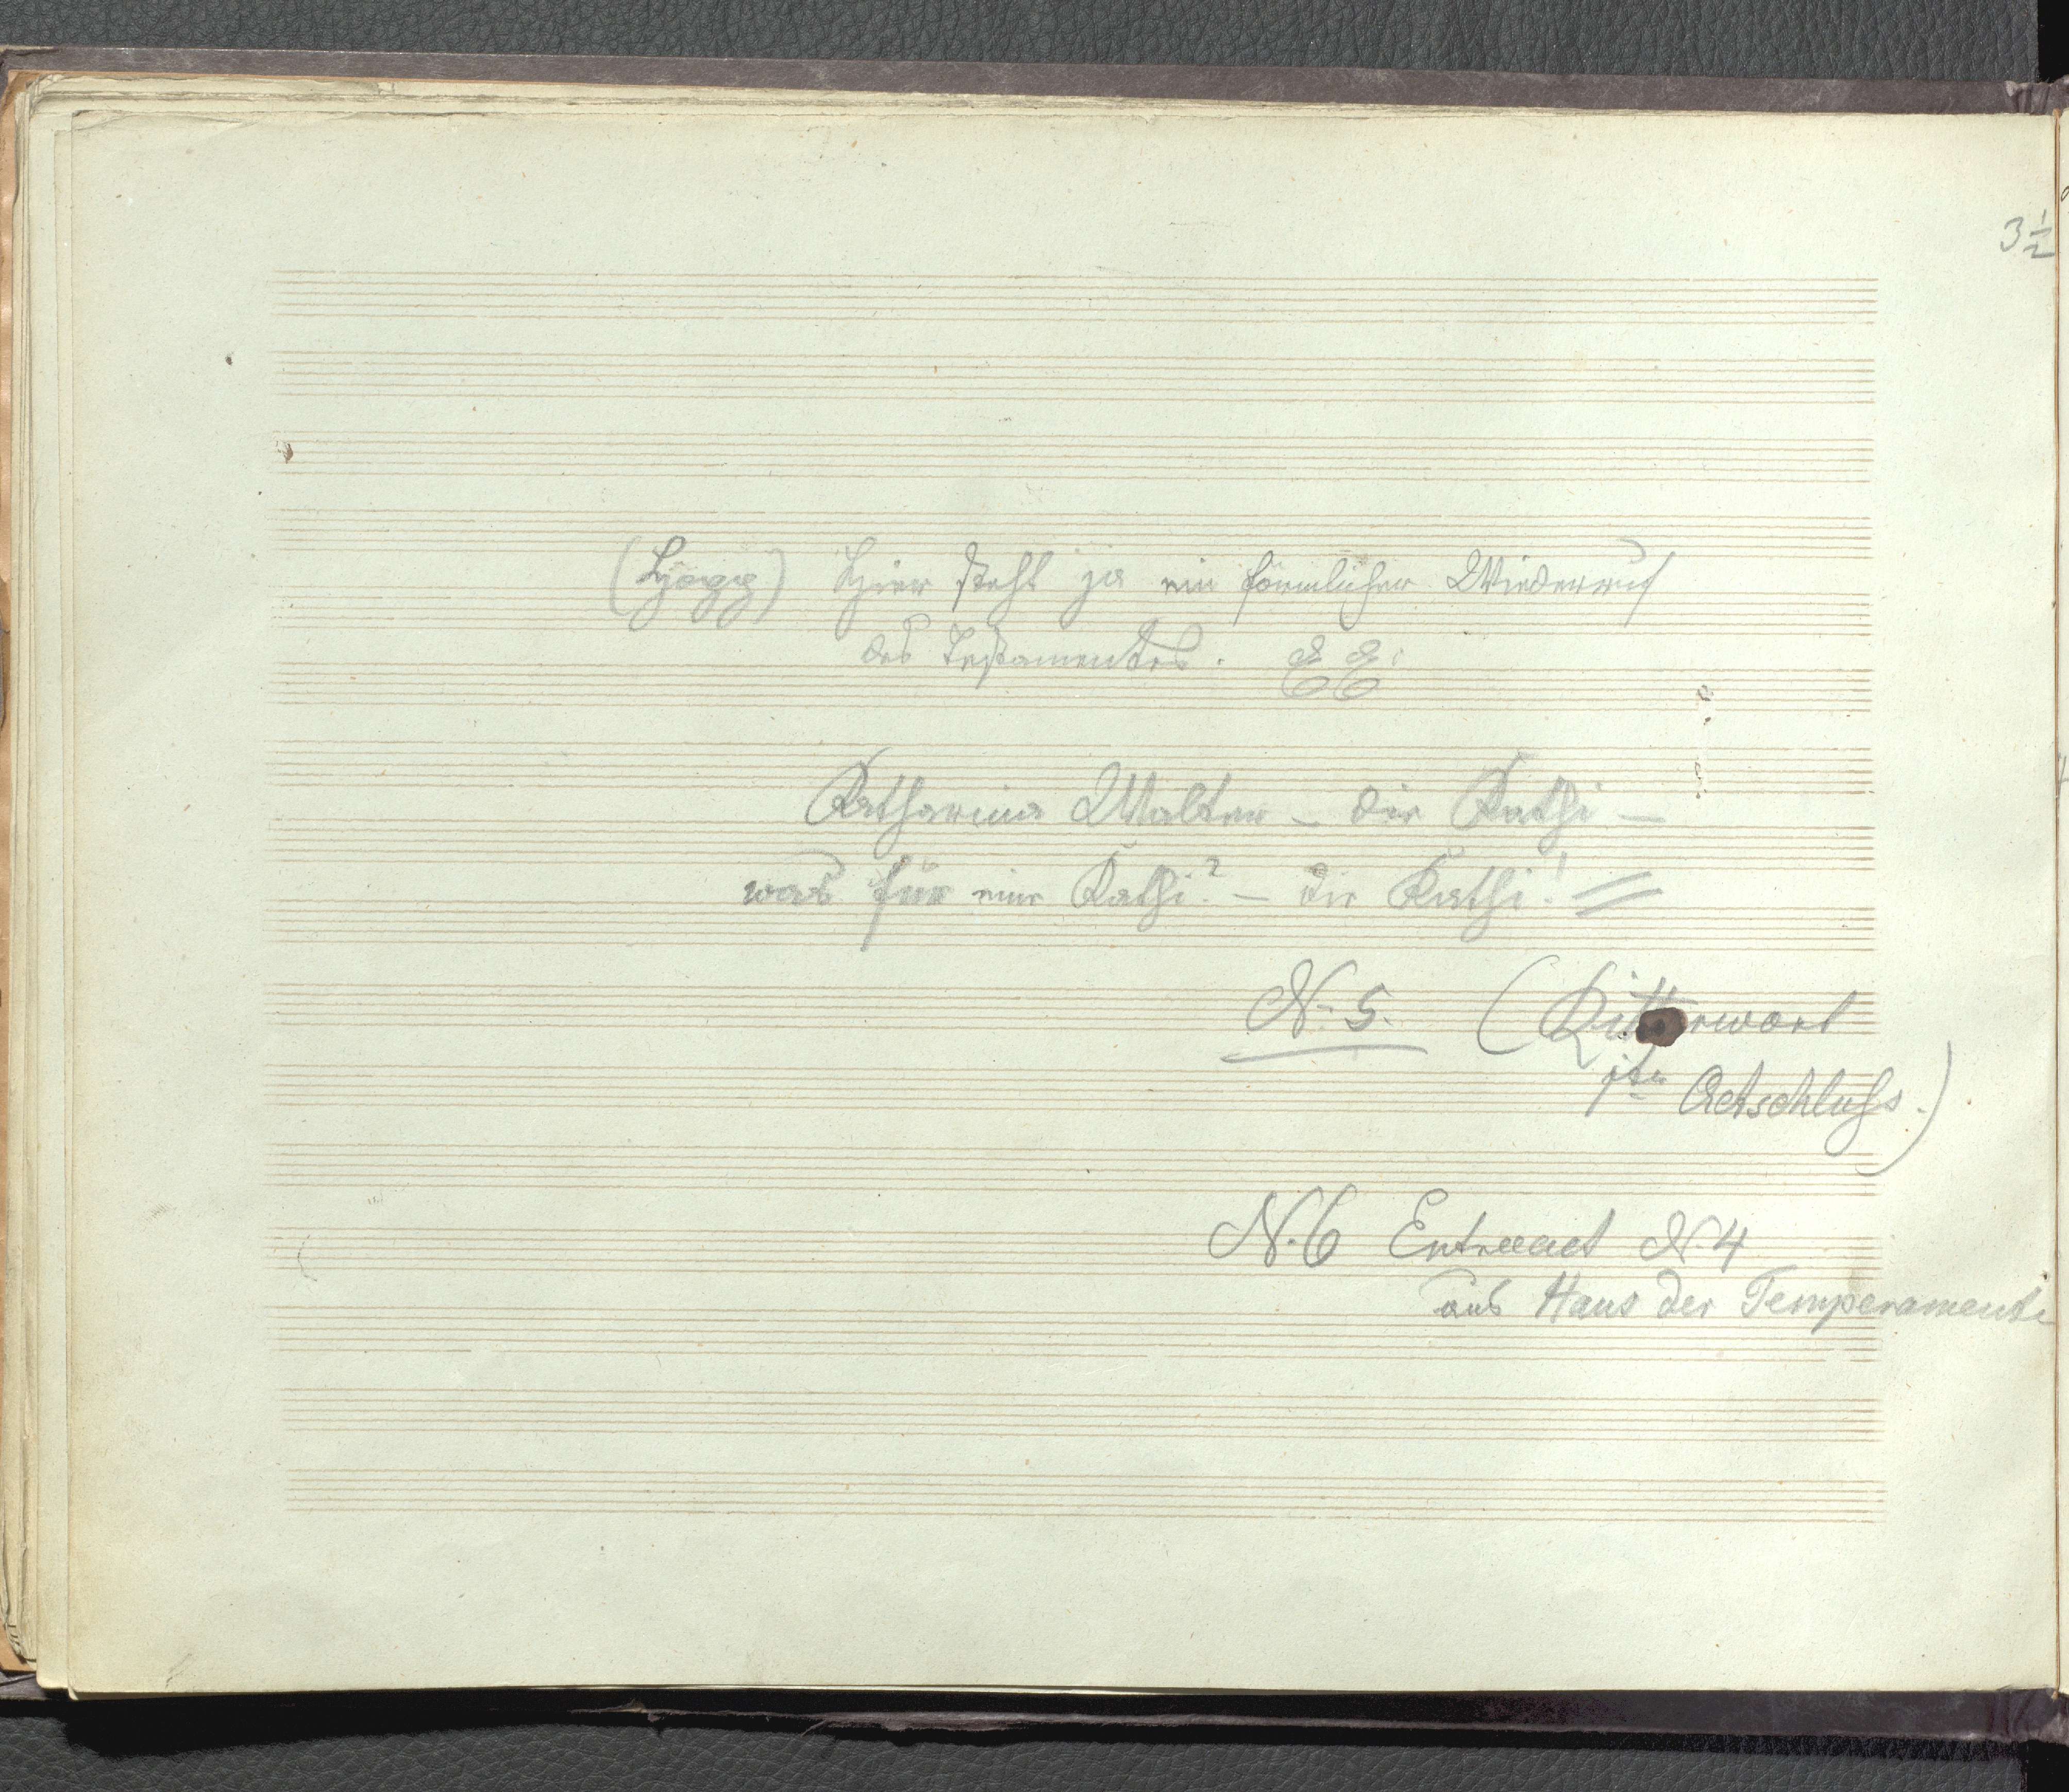 3 1/2
(Hopp) Hier steht ja ein förmlicher Wiederruf
des Testamentes.
Katharina Walter – die Kathi –
was für eine Kathi? – die Kathi!
N. 5. (Ritterwort
1ter Actschluß.)
N. 6 Entreact N. 4
aus Haus der Temperamente